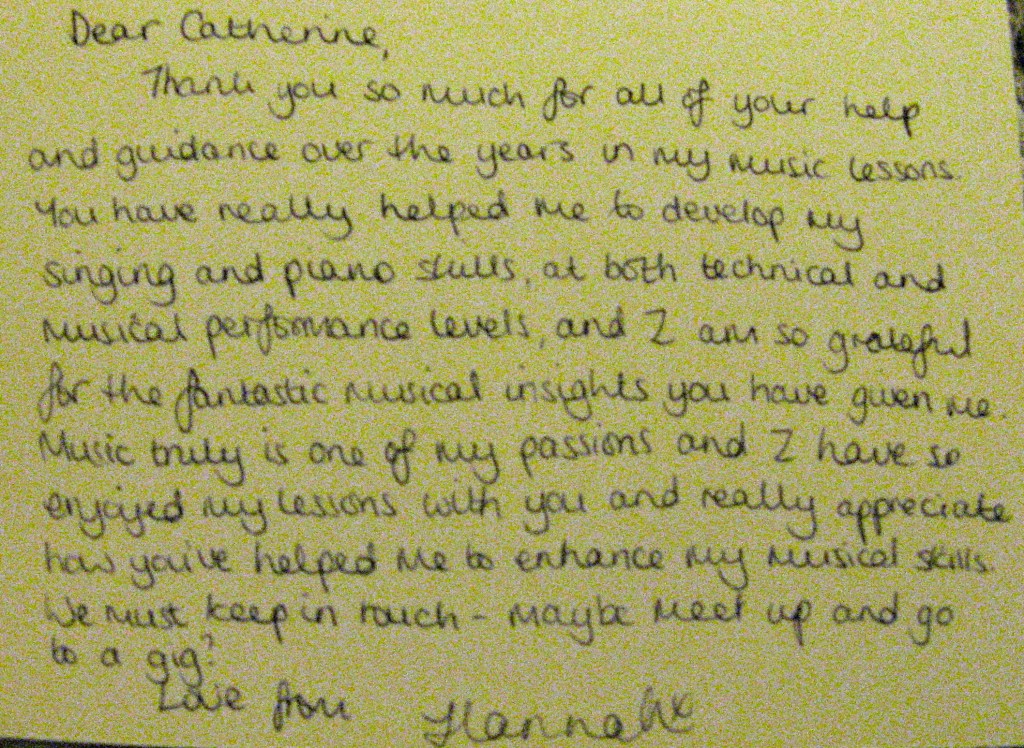 Dear Catherine,
Thank you so much for all of your help
and guidance over the years in my music lessons.
You have really helped me to develop my
singing and piano skills, at both technical and
musical performance levels, and I am so grateful
for the fantastic musical insights you have given me.
Music truly is one of my passions and I have so
enjoyed my lessons with you and really appreciate
how you've helped me to enhance my musical skills.
We must keep in touch - maybe meet up and go
to a gig?
Love from Hannah x